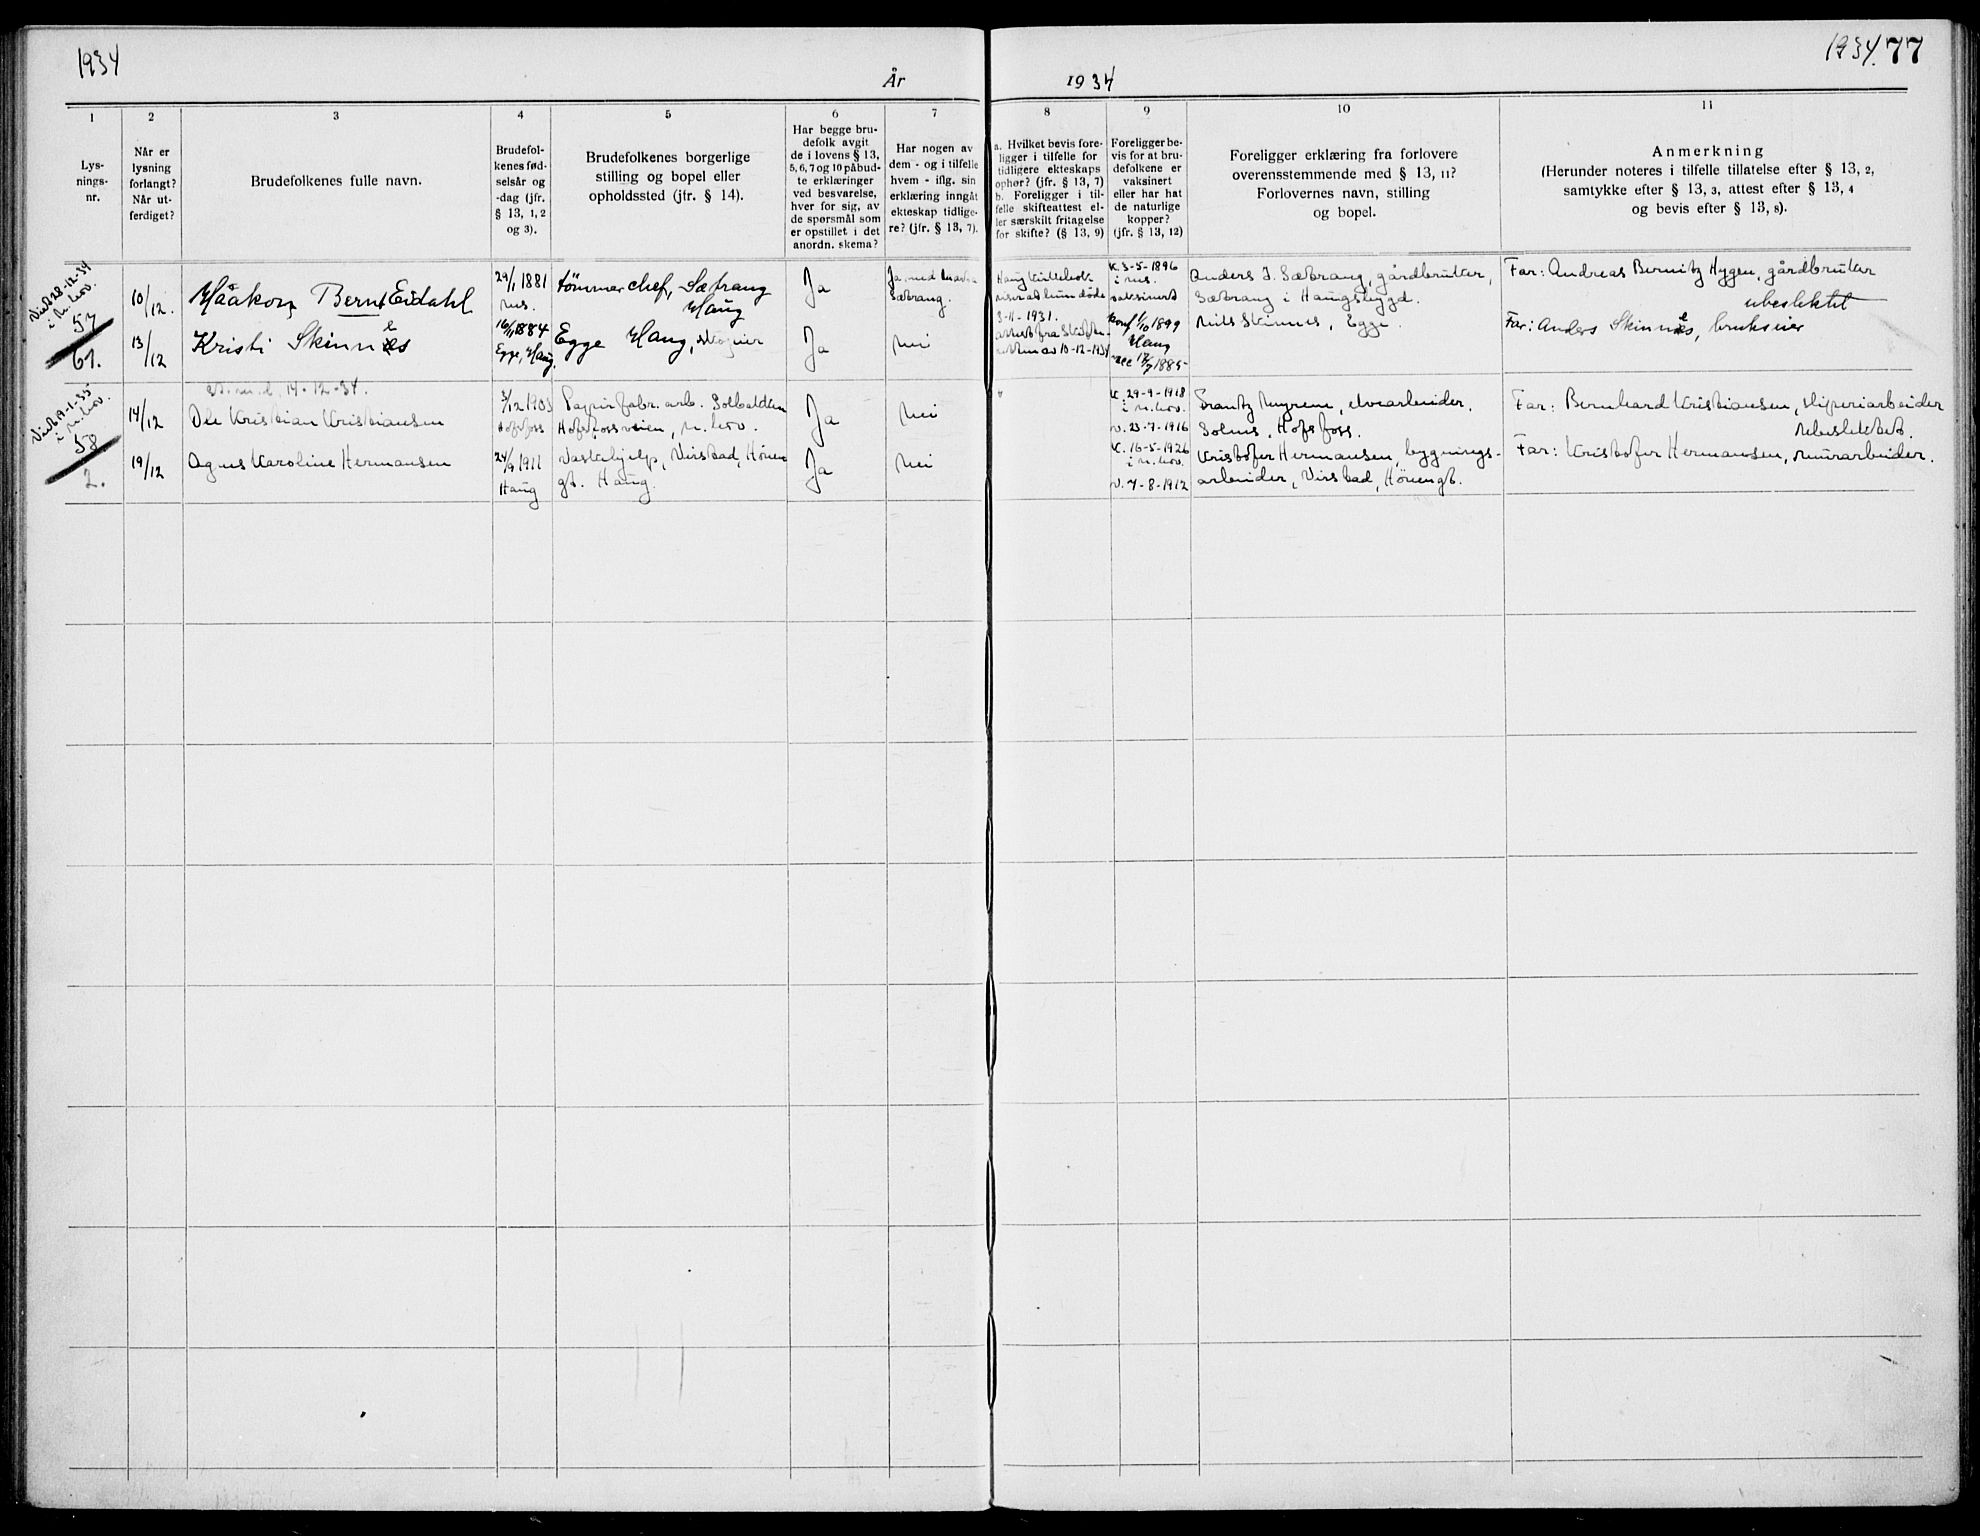 1934
År
1934
1934. 77
1
Lys-
nings-
nr.
2
Når er
lysning
forlangt?
Når ut-
ferdiget?
3
Brudefolkenes fulle navn.
4
Brudefol-
kenes fød-
selsår og
-dag (jfr.
§ 13, 1, 2
og 3).
5
Brudefolkenes borgerlige
stilling og bopel eller
opholdssted (jfr. § 14).
6
Har begge bru-
defolk avgit
de i lovens § 13,
5, 6, 7 og 10 påbud-
te erklæringer
ved besvarelse,
hver for sig, av
de spørsmål som
er opstillet i det
anordn. skema?
7
Har nogen av
dem - og i tilfelle
hvem - iflg. sin
erklæring inngåt
ekteskap tidlige-
re? (jfr. § 13, 7).
8
a. Hvilket bevis fore-
ligger i tilfelle for
tidligere ekteskaps
ophør? (jfr. § 13, 7)
b. Foreligger i til-
felle skifteattest el-
ler særskilt fritagelse
for skifte? (§ 13, 9)
9
Foreligger be-
vis for at bru-
defolkene er
vaksinert
eller har hat
de naturlige
kopper?
(jfr. § 13, 12)
10
Foreligger erklæring fra forlovere
overensstemmende med § 13, 11?
Forlovernes navn, stilling
og bopel.
11
Anmerkning
(Herunder noteres i tilfelle tillatelse efter § 13, 2,
samtykke efter § 13, 3, attest efter § 13, 4
og bevis efter § 13, 8).
Viet 28-12-34
i N. hov.
57
61.
10/12.
Håakon Bernt Eidahl
29/1 1881
nes.
tömmerchef, Sætrang
Haug
Ja
Ja, med
Sætrang.
3-11-1931.
10-12-1934
K. 3-5-1896
i nes.
vaksinert
Anders J. Sætrang, gårdbruker,
Sætrang i Haugsbygd.
Far: Andreas Bernitz Hygen, gårdbruker
ubeslektet
13/12
Kristi Skinnes
16/11 1884
Egge, Haug.
Egge Haug,
Ja
Nei
Konf 1/10 1899
Haug
vacc 17/7 1885-
Nils Skinnes, Egge.
Far: Anders Skinnes, brukseier
Viet 19-1-35
i N. hov.
58
2.
14-12-34.
14/12
Ole Kristian Kristiansen
3/12 1903
Hofsfoss
Papirfabr. arb. Solbakken
Hofsfossveien, N. hov.
Ja
Nei
"
K. 29-9-1918
i N. hov.
v. 23-7-1916
Frantz Myrene, elvearbeider,
Solnes, Hofsfoss.
Far: Bernhard Kristiansen, sliperiarbeider
Ubeslektet.
19/12
Agnes Karoline Hermansen
24/9 1911
Haug
Vaskehjelp, Virstad, Hönen
gt. Haug.
Ja
Nei
K. 16-5-1926
i N. hov.
v. 7-8-1912
Kristofer Hermansen, bygnings-
arbeider, Virstad, Hönengt.
Far: Kristofer Hermansen, murarbeider.